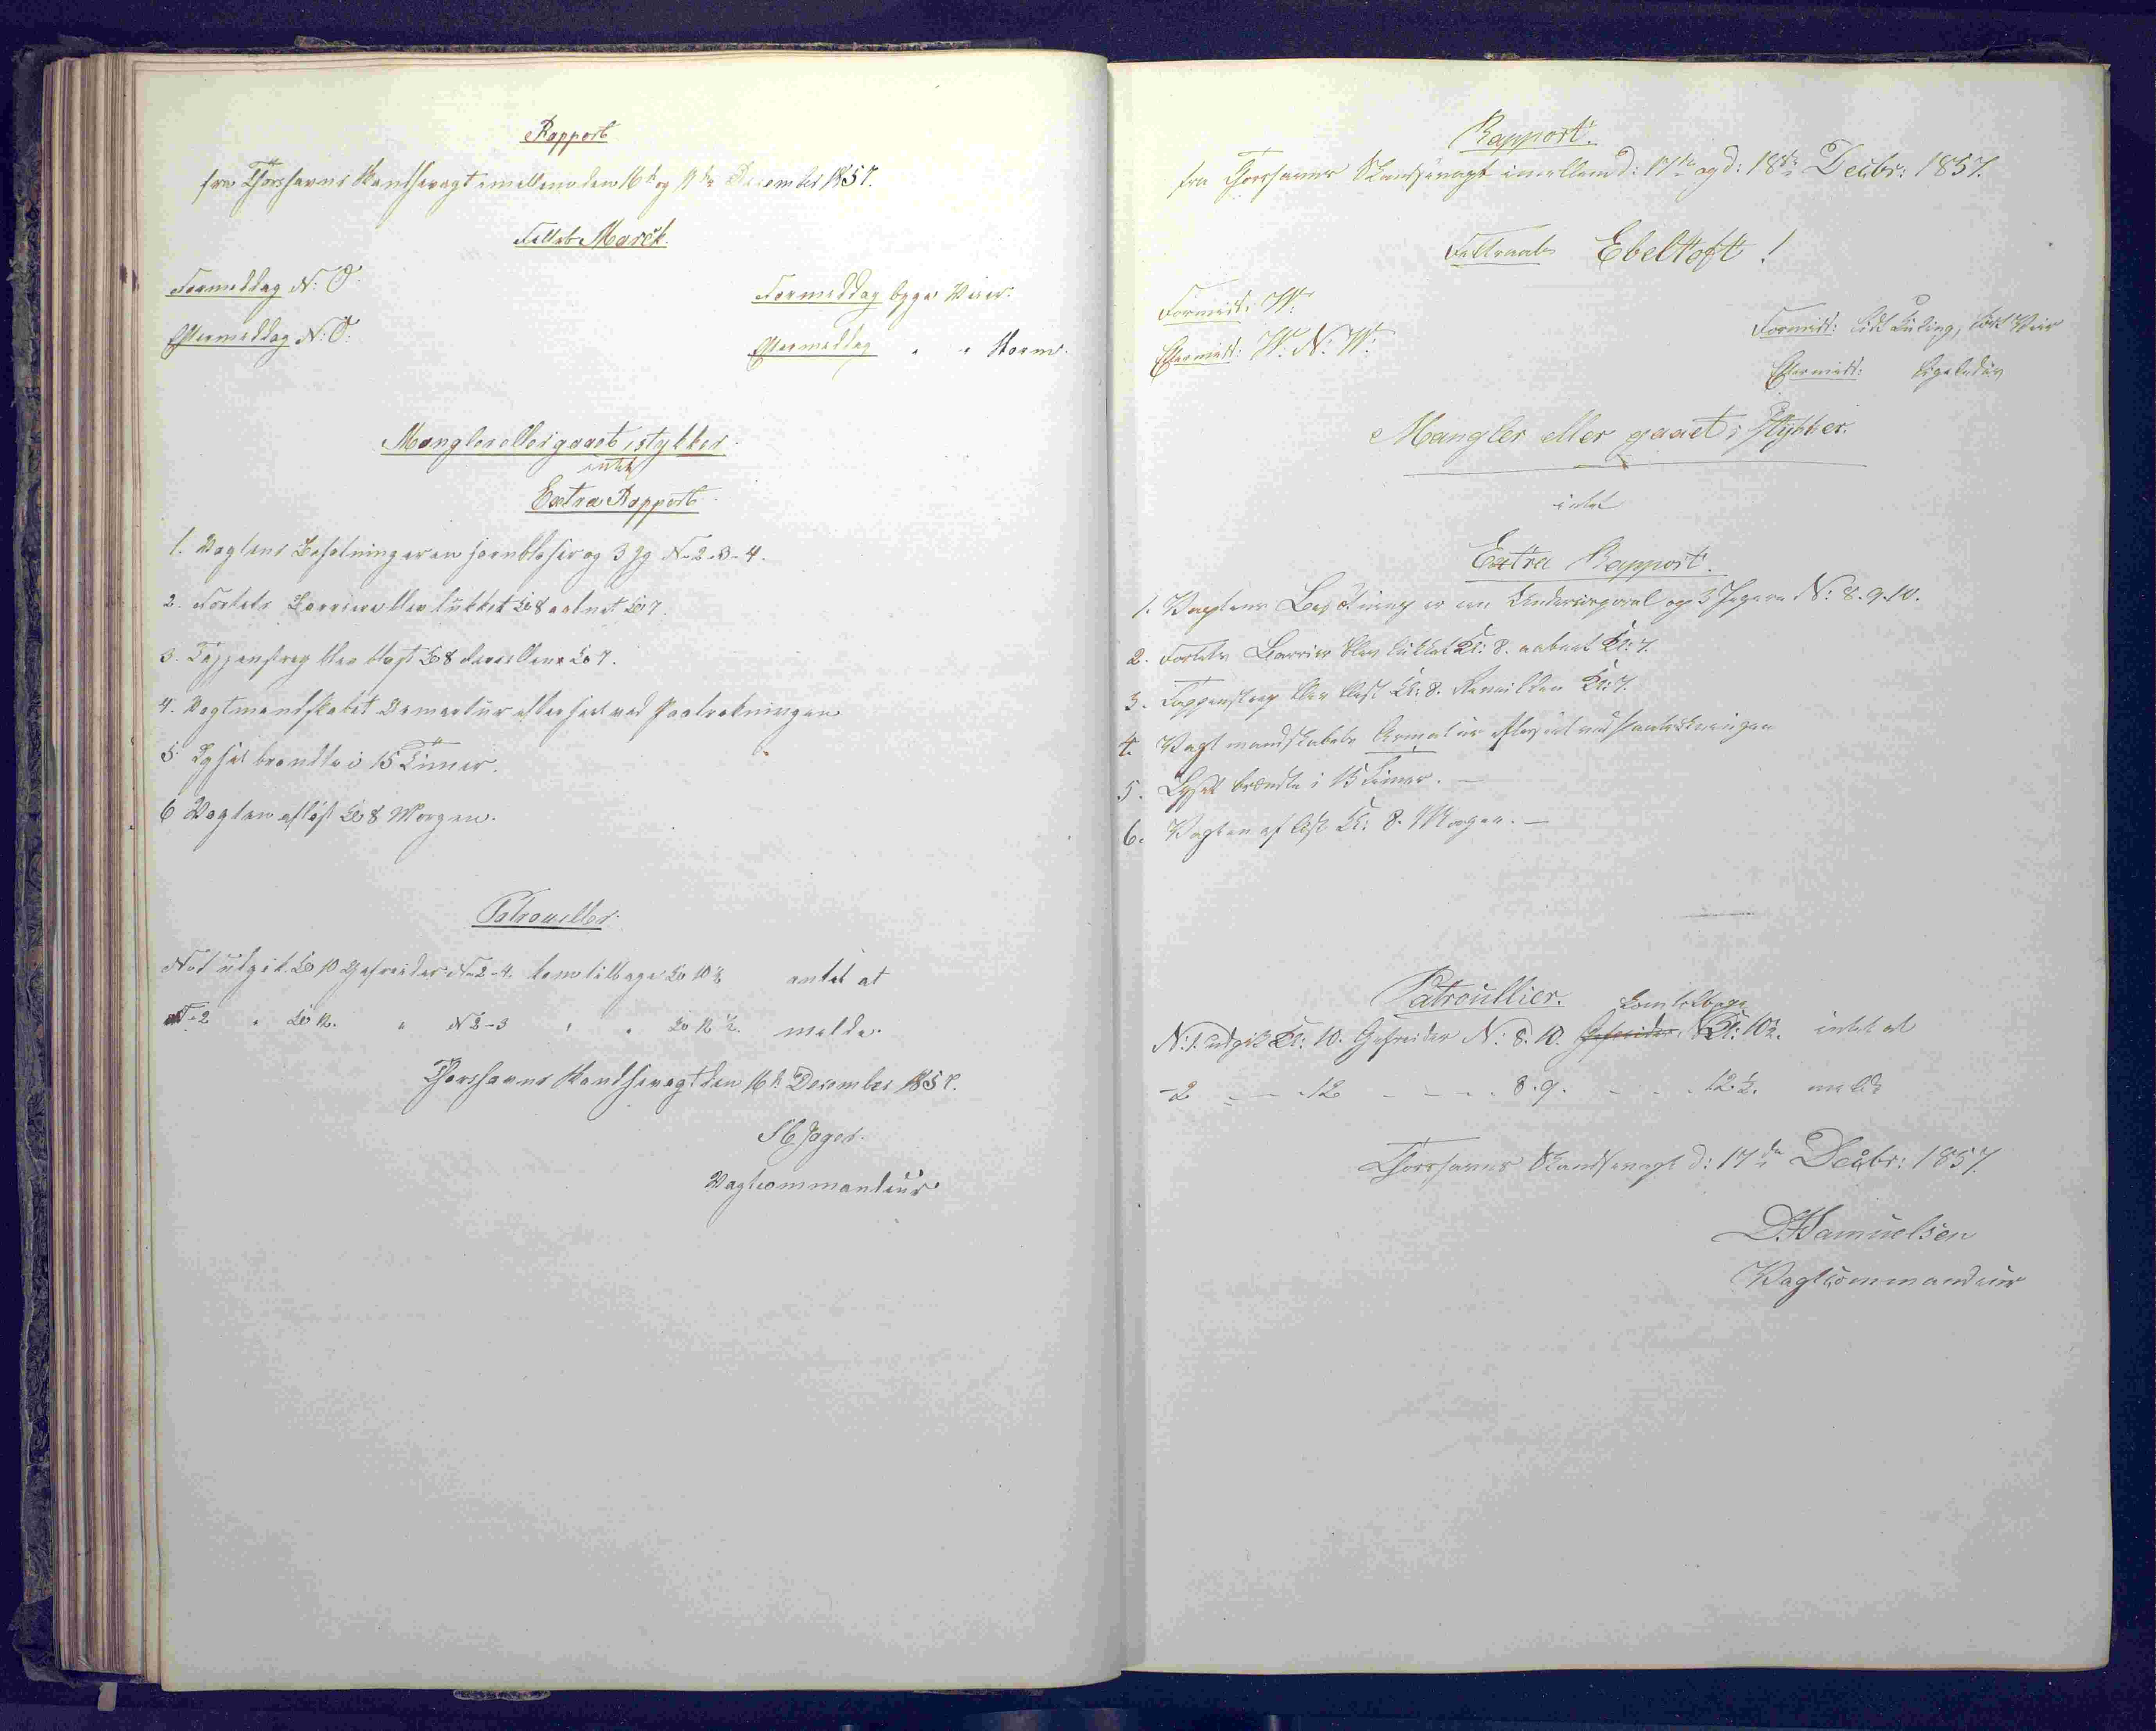 Rapport
fra Thorshavns Skandsevagt imellem den 16de og 17de December 1857.
Feltrb Marck.
Formeddag N: O.
Formeddag byge Veier.
Eftermeddag N: O:
Eftermeddag " " Storm.
Mangler eller gaaet i stykker
intet
Extra Rapport
1. Vagtens Besætning er en Hornblæser og 3 Jg N- 2-3-4.
2. Fortets Barriere blev lukket Kl 8 aabnet Kl 7.
3. Tappenstreg blev blæst Kl 8 Reveillen Kl 7.
4. Vagtmandskabet Armertur efterseet ved Paatrækningen
5 Lyset brændte i 15 Timer.
6 Vagten afløst Kl 8 Morgen.
Patrouiller
No 1 udgik Kl 10 Gefreider N- 2-4. kom tilbage Kl 10½ intet at
N- 2 " Kl 12. " N 2-3 " " Kl 12½. melde.
Thorshavns Skandsevagt den 16de December 1857.
Jager.
Vagtcommanteur
Rapport.
fra Thorshavns Skandsevagt imellem d: 17de og d: 18de Decbr: 1857.
Feltraab Ebeltoft!
Formidt: W:
Formidt: Kuling, Veir
Eftermidt: W: N: W:
Eftermidt: ligeledes
Mangler eller gaaet i Stykker.
intet
Extra Rapport.
1. Vagtens Besætning er en Undercorporal og 3 Jægere N: 8. 9. 10.
2. Fortets Barrier blev lukket Kl: 8. aabnet Kl: 7.
3. Tappenstreg blev blæst Kl: 8. Reveillen Kl: 7.
4. Vagtmandskabets Armatur efterseet ved Paatrækningen
5. Lyset brændte i 15 Timer. —
6. Vagten afløst Kl: 8. Morgen. —
Patroullier.
kom tilbage
N: 1. udgik Kl: 10. Gefreider N: 8. 10. Gefreider Kl: 10½. intet at
- 2 - - 12 - - - 8. 9. - - 12½. melde
Thorshavns Skandsevagt d: 17de Decbr: 1857.
D. Samuelsen
Vagtcommandeur